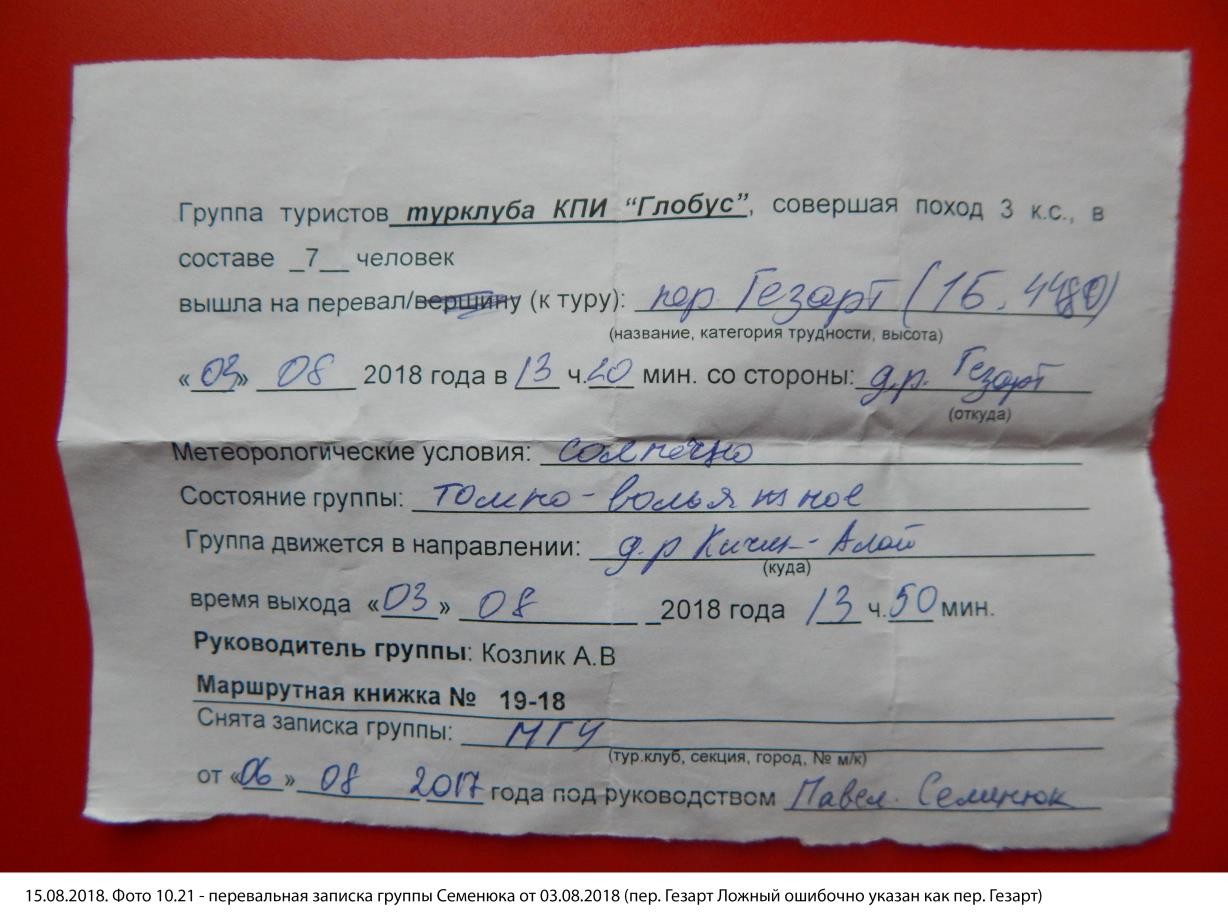 Группа туристов турклуба КПИ “Глобус”, совершая поход 3 к.с., в
составе _7__ человек
вышла на перевал/вершину (к туру): пер Гезарт (1Б, 4480)
(название, категория трудности, высота)
«03» 08 2018 года в 13 ч.20 мин. со стороны: д.р. Гезарт
(откуда)
Метеорологические условия: солнечно
Состояние группы: томно-вольяжное
Группа движется в направлении: д.р Кичик-Алай
(куда)
время выхода «03» 08 _2018 года 13 ч.50 мин.
Руководитель группы: Козлик А.В
Маршрутная книжка № 19-18
Снята записка группы: МГУ
(тур.клуб, секция, город, № м/к)
от «06» 08 2017 года под руководством Павел Семинюк
15.08.2018. Фото 10.21 - перевальная записка группы Семенюка от 03.08.2018 (пер. Гезарт Ложный ошибочно указан как пер. Гезарт)